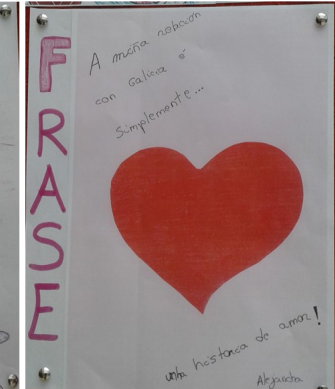 FRASE
A miña relación
con Galicia é
simplemente...
unha historia de amor!
Alejandra